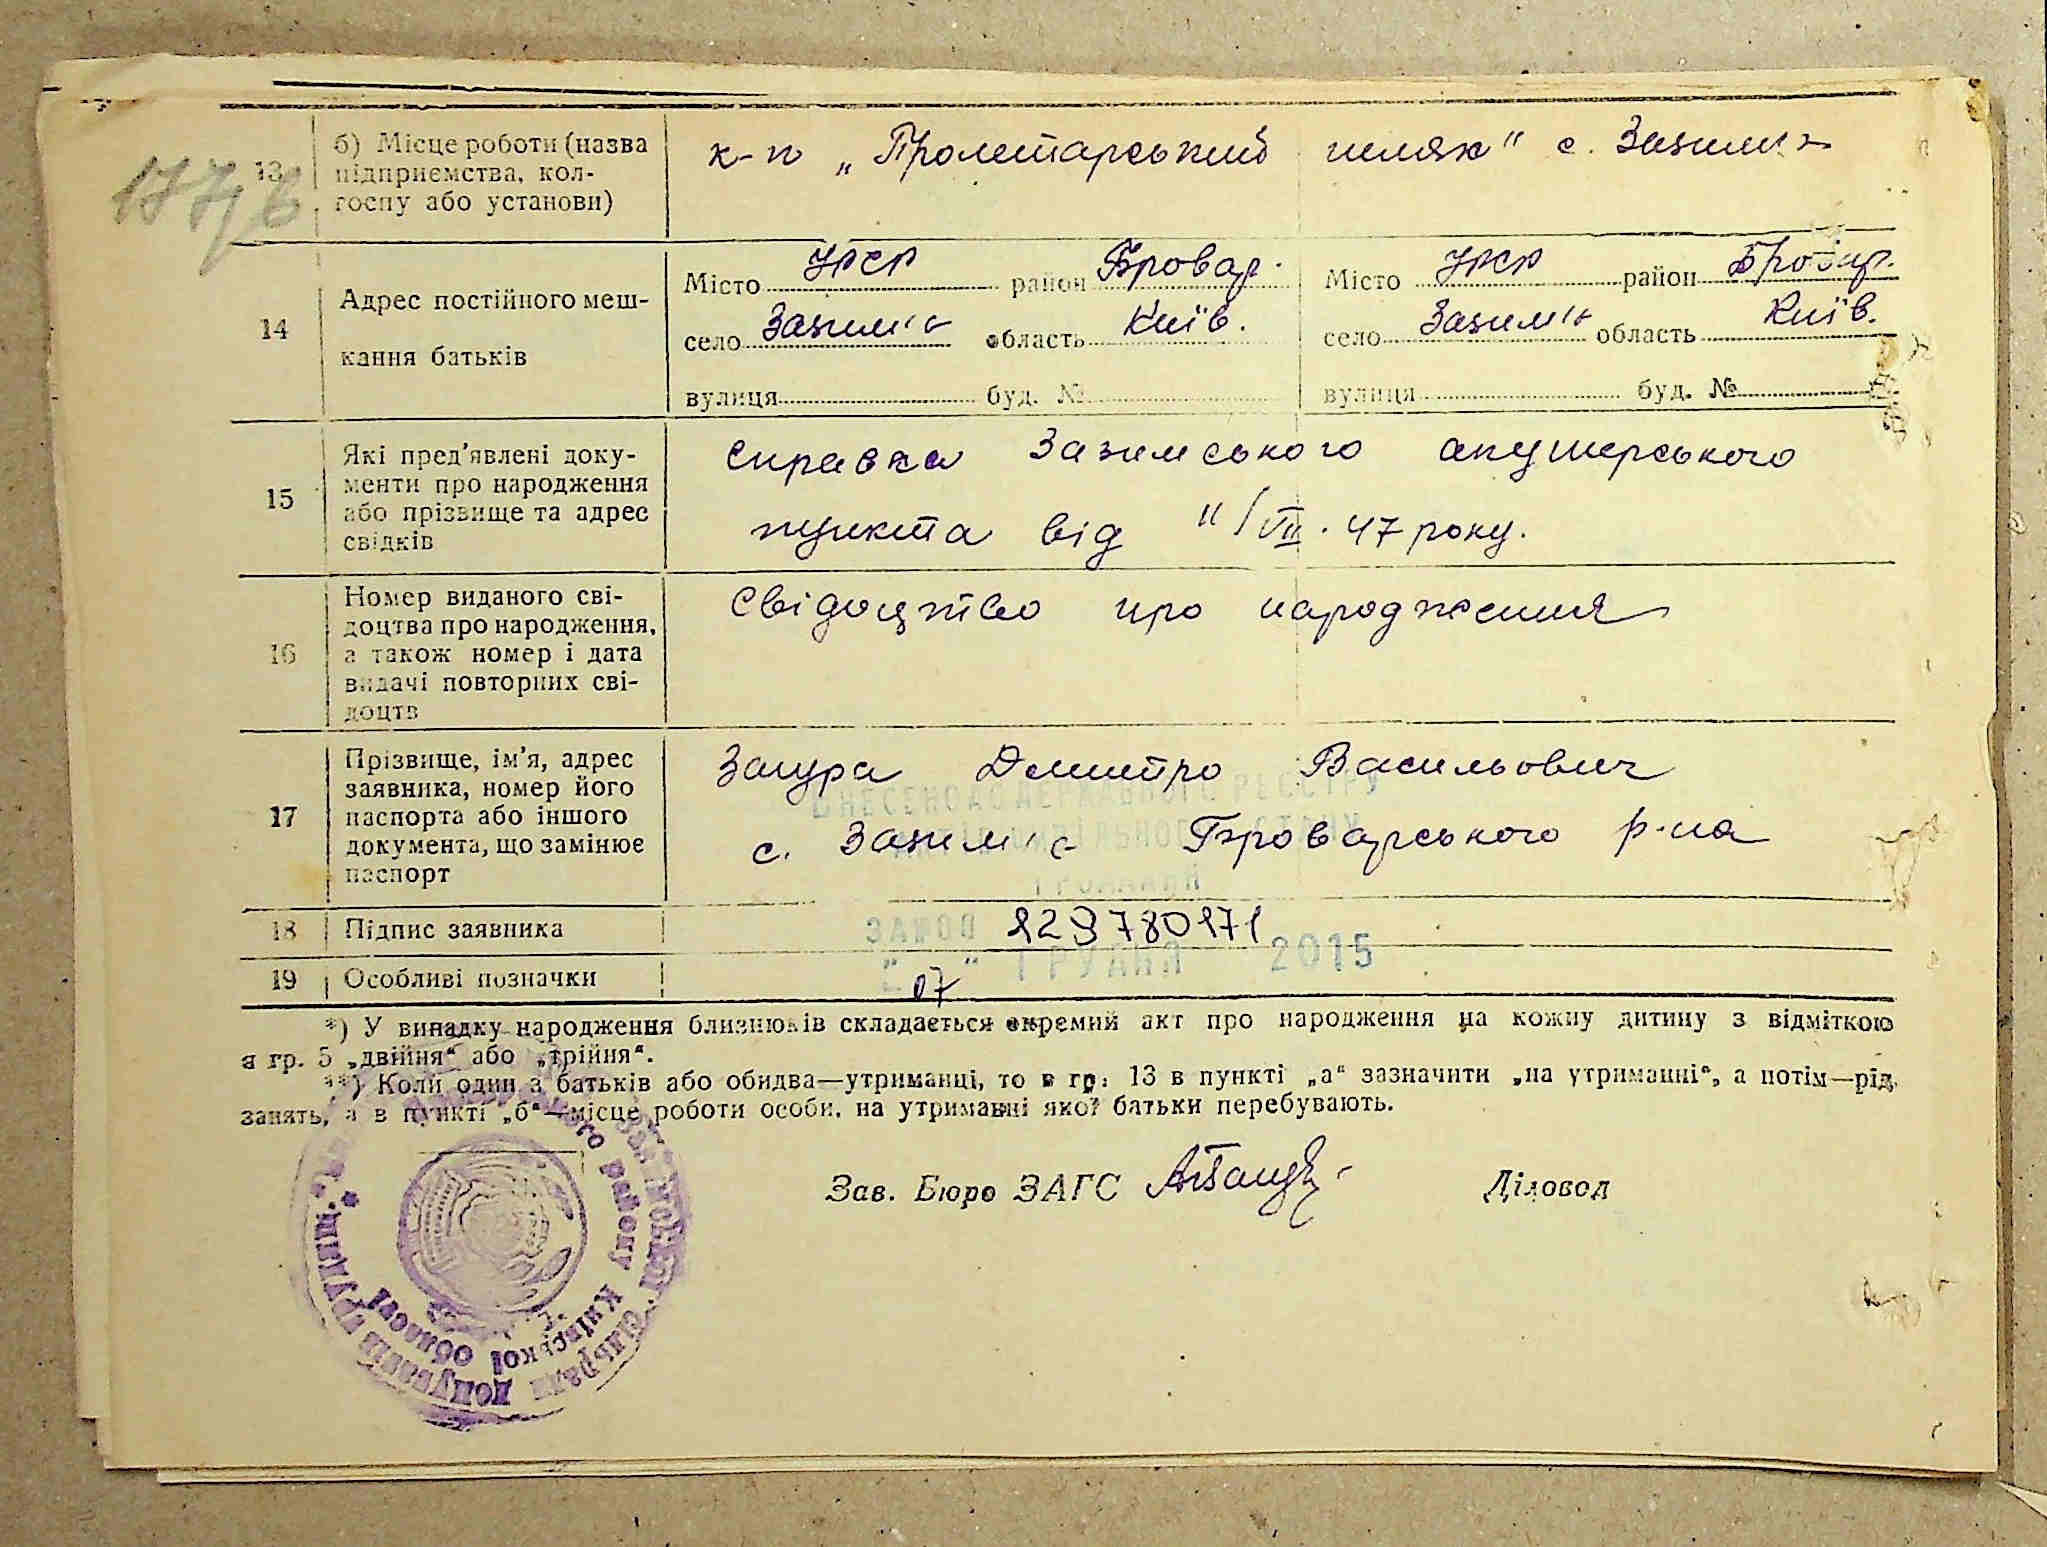 177/в
13
б) Місце роботи (назва
підприємства, кол-
госпу або установи)
к-п „Пролетарський шлях" с. Зазим'я
14
Адрес постійного меш-
кання батьків
Місто УРСР район Бровар.
село Зазим'я область Київ.
вулиця буд. №
Місто УРСР район Бровар.
село Зазим'я область Київ.
вулиця буд. №
15
Які пред'явлені доку-
менти про народження
або прізвище та адрес
свідків
справка Зазимського акушерського
пункта від 11/VII. 47 року.
16
Номер виданого сві-
доцтва про народження,
а також номер і дата
видачі повторних сві-
доцтв
Свідоцтво про народження
17
Прізвище, ім'я, адрес
заявника, номер його
паспорта або іншого
документа, що замінює
паспорт
Дмитро Васильович
с. Зазим'я Броварського р-на
ВНЕСЕНО ДО ДЕРЖАВНОГО РЕЄСТРУ
АКТІВ ЦИВІЛЬНОГО СТАНУ
ГРОМАДЯН
18
Підпис заявника
ЗА №00 129780171
„07" ГРУДНЯ 2015
19
Особливі позначки
*) У випадку народження близнюків складається окремий акт про народження на кожну дитину з відміткою
в гр. 5 „двійня" або „трійня".
**) Коли один з батьків або обидва—утриманці, то в гр. 13 в пункті „а" зазначити „на утриманні", а потім—рід
занять, а в пункті „б"—місце роботи особи, на утриманні якої батьки перебувають.
Зав. Бюро ЗАГС
Діловод
сільради депутатів трудящ.
району Київської області